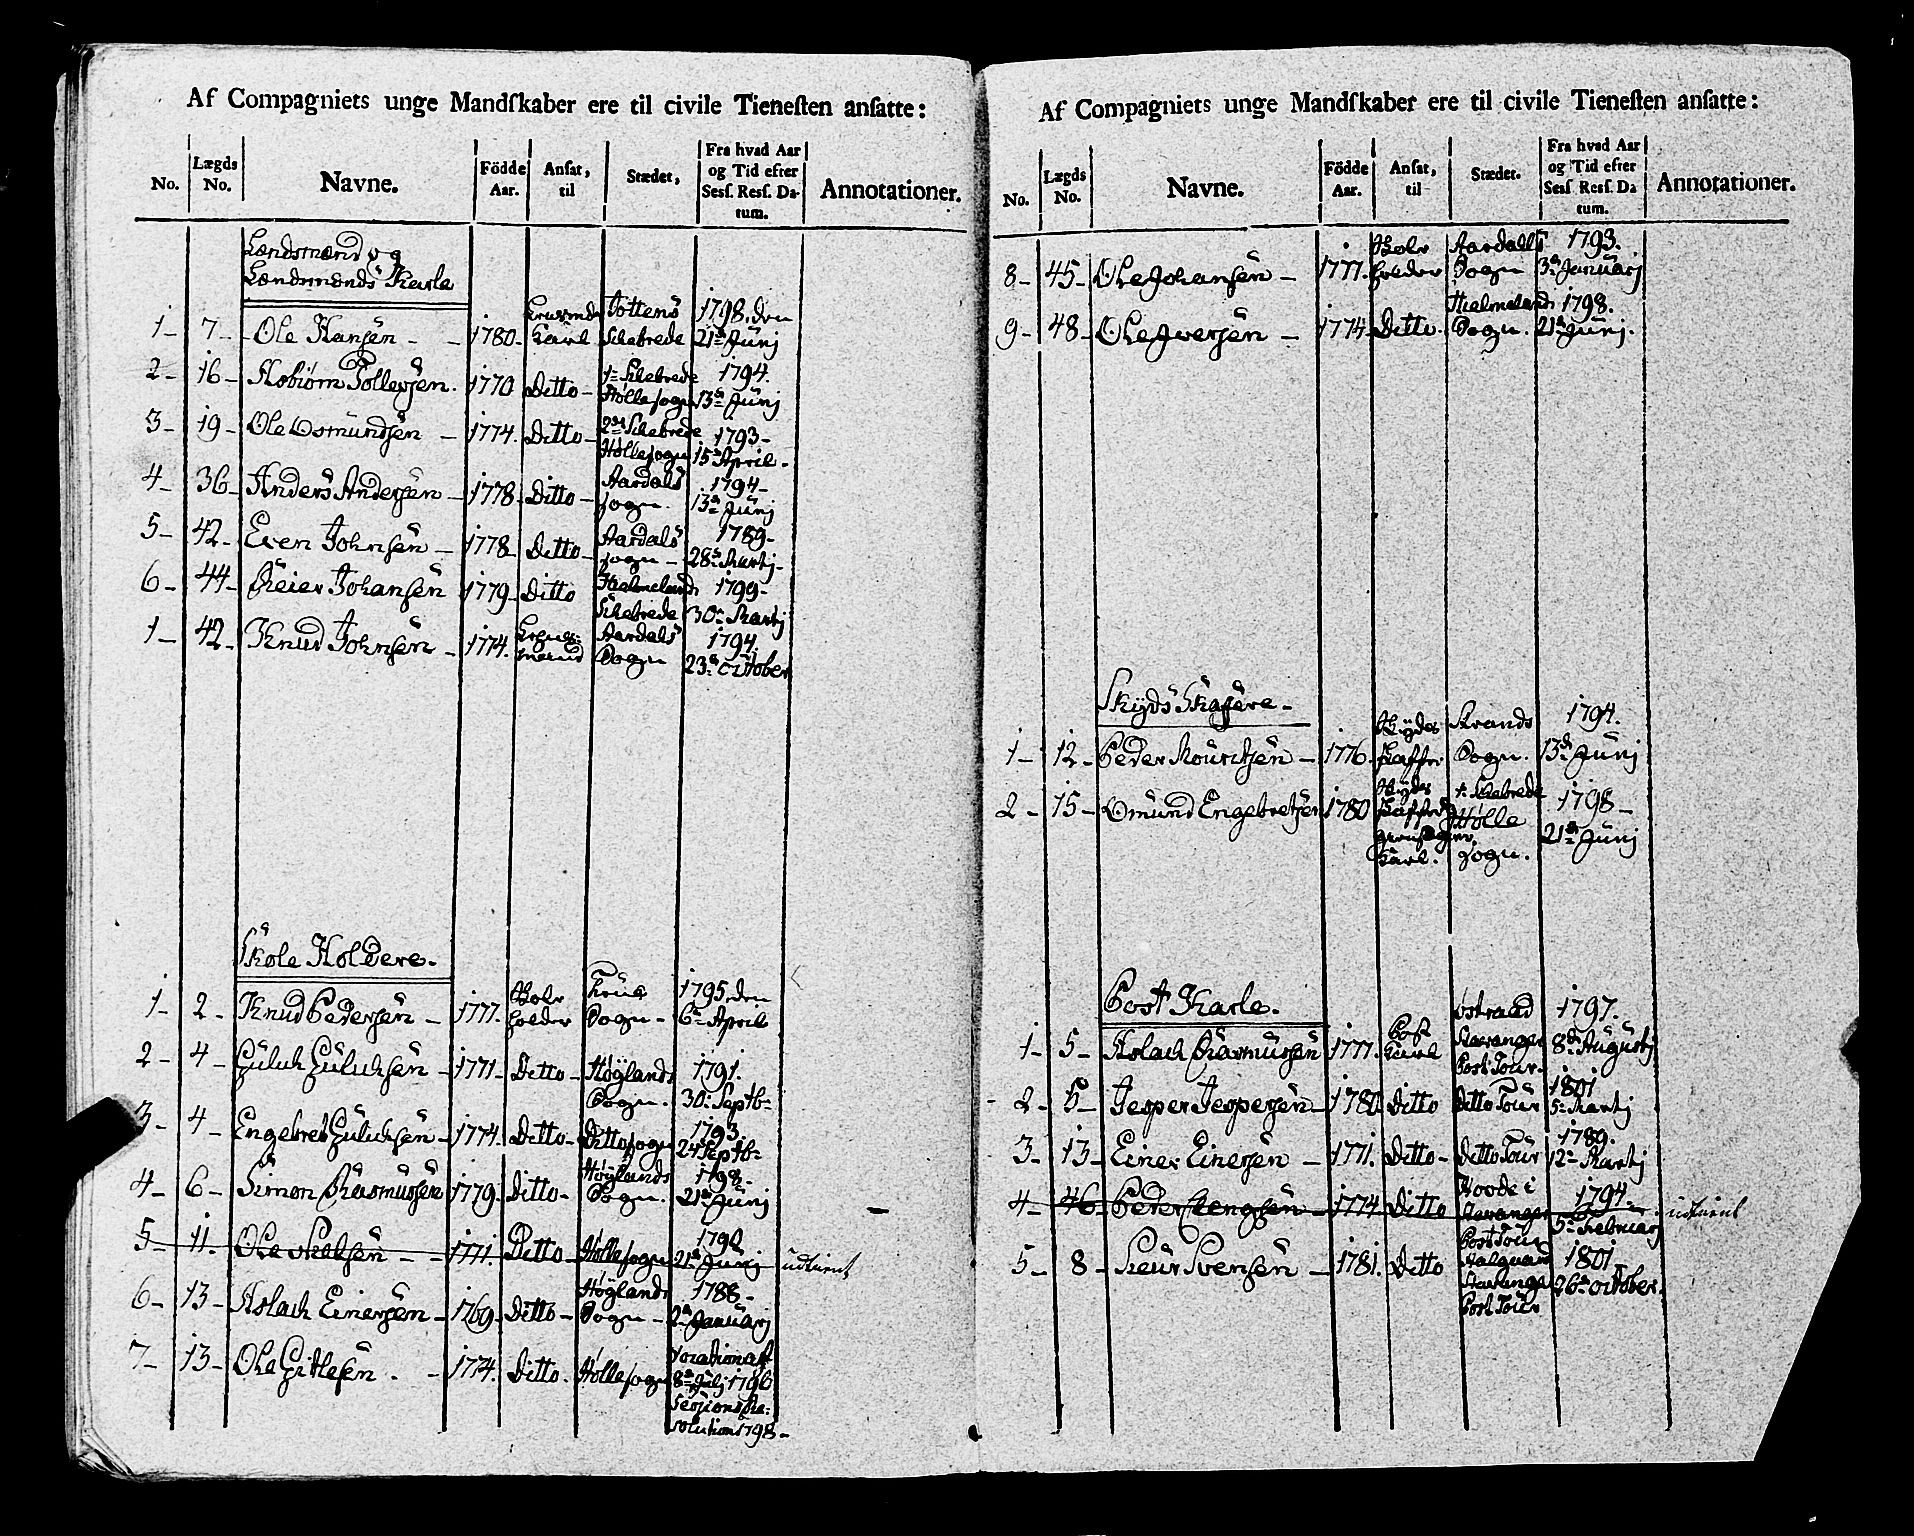 Af Compagniets unge Mandſkaber ere til civile Tieneſten anſatte:
No. Lægds No. Navne. Födde Aar. Anſat, til Stædet, Fra hvad Aar og Tid efter Sesſ. Resſ. Datum. Annotationer.
Lændsmænd og
Lændsmænds Karle
1 - 7 - Ole Hansen - 1780 - Karl Tottens Skebrede 1798. den 21de Junj
2 - 16 - Asbiørn Tollefsen. 1770 Ditto - 1te Skebrede Hølle sogn 1794. 13de Junj
3 - 19 - Ole Osmundsen - 1774. Ditto - 2det Skebrede Hølle sogn 1793 - 15de April -
4 - 36 - Anders Andersen - 1778 - Ditto - Aardals sogn. 1794 - 13de Junj
5 - 42 - Even Johnsen - 1778 - Ditto - Aardals sogn - 1789 - 28de Martj -
6 - 44 - Reier Johansen 1779 - Ditto Hielmeland Skebrede 1799 - 30te Martj
1 - 42 - Knud Johnsen - 1774. Aardals Sogn 1794. 23de October
Skole Holdere.
1 - 2 - Knud Pedersen - 1777. Skole holder Sogn - 1795. den 6te April
2 - 4 - Guluk Guluksen - 1771 - Ditto - Høylands Sogn. 1791. 30te Septbr
3 - 4 - Engebret Guluksen - 1774. Ditto - Ditto sogn 1793. 24 Septbr
4 - 6 - Simon Rasmussen 1779. Ditto - Høylands Sogn. 1798 - 21de Junj
5 - 11. Ole Nielsen - - 1771. Ditto - Hølle sogn 21de Junj udtient
6 - 13 - Aslach Einersen - 1769 - Ditto - Høylands Sogn - 1788 - 2den Januarj
7 - 13 - Ole Gitlesen. - 1774. Ditto. Hølle sogn Vocation af 8de Julj 1796 Sessions Resolution 1798 -
Af Compagniets unge Mandſkaber ere til civile Tieneſten anſatte:
No. Lægds No. Navne. Födde Aar. Anſat, til Stædet. Fra hvad Aar og Tid efter Sesſ. Resſ. Datum. Annotationer.
8 - 45 - Ole Johansen - 1777. Skole holder Aardalls Sogn 1793. 3de Januarj
9 - 48 - Ole Iversen - 1774 - Ditto. Hielmeland Sogn. 1798. 21de Junj.
Skyds Skafere -
1 - 12 - Peder Mouritsen - 1776. Skyds skaffer Strands Sogn. 1794. 13de Junj
2 - 15 - Omund Engebretsen 1780 Skyds skaffer Karl. 1. Skebrede Hølle sogn. 1798 - 21de Junj
Post Karle.
1 - 5 - Aslach Rasmussen 1777. Post Karl Stavanger Post Tour. 1797. 8de Augustj
- 2 - 5 - Jesper Jespersen - 1780 Ditto Ditto Tour 1801 5te Martj
3 - 13 - Einer Einersen - 1771. Ditto - Ditto Tour 1789. 12te Martj
4 - 46 - Peder - 1774 Ditto Stavanger Post Tour 1794. 5te Februarj udtient
5 - 8 - Sven Svensen - 1781. Ditto Stavanger Post Tour 1801. 26de October.